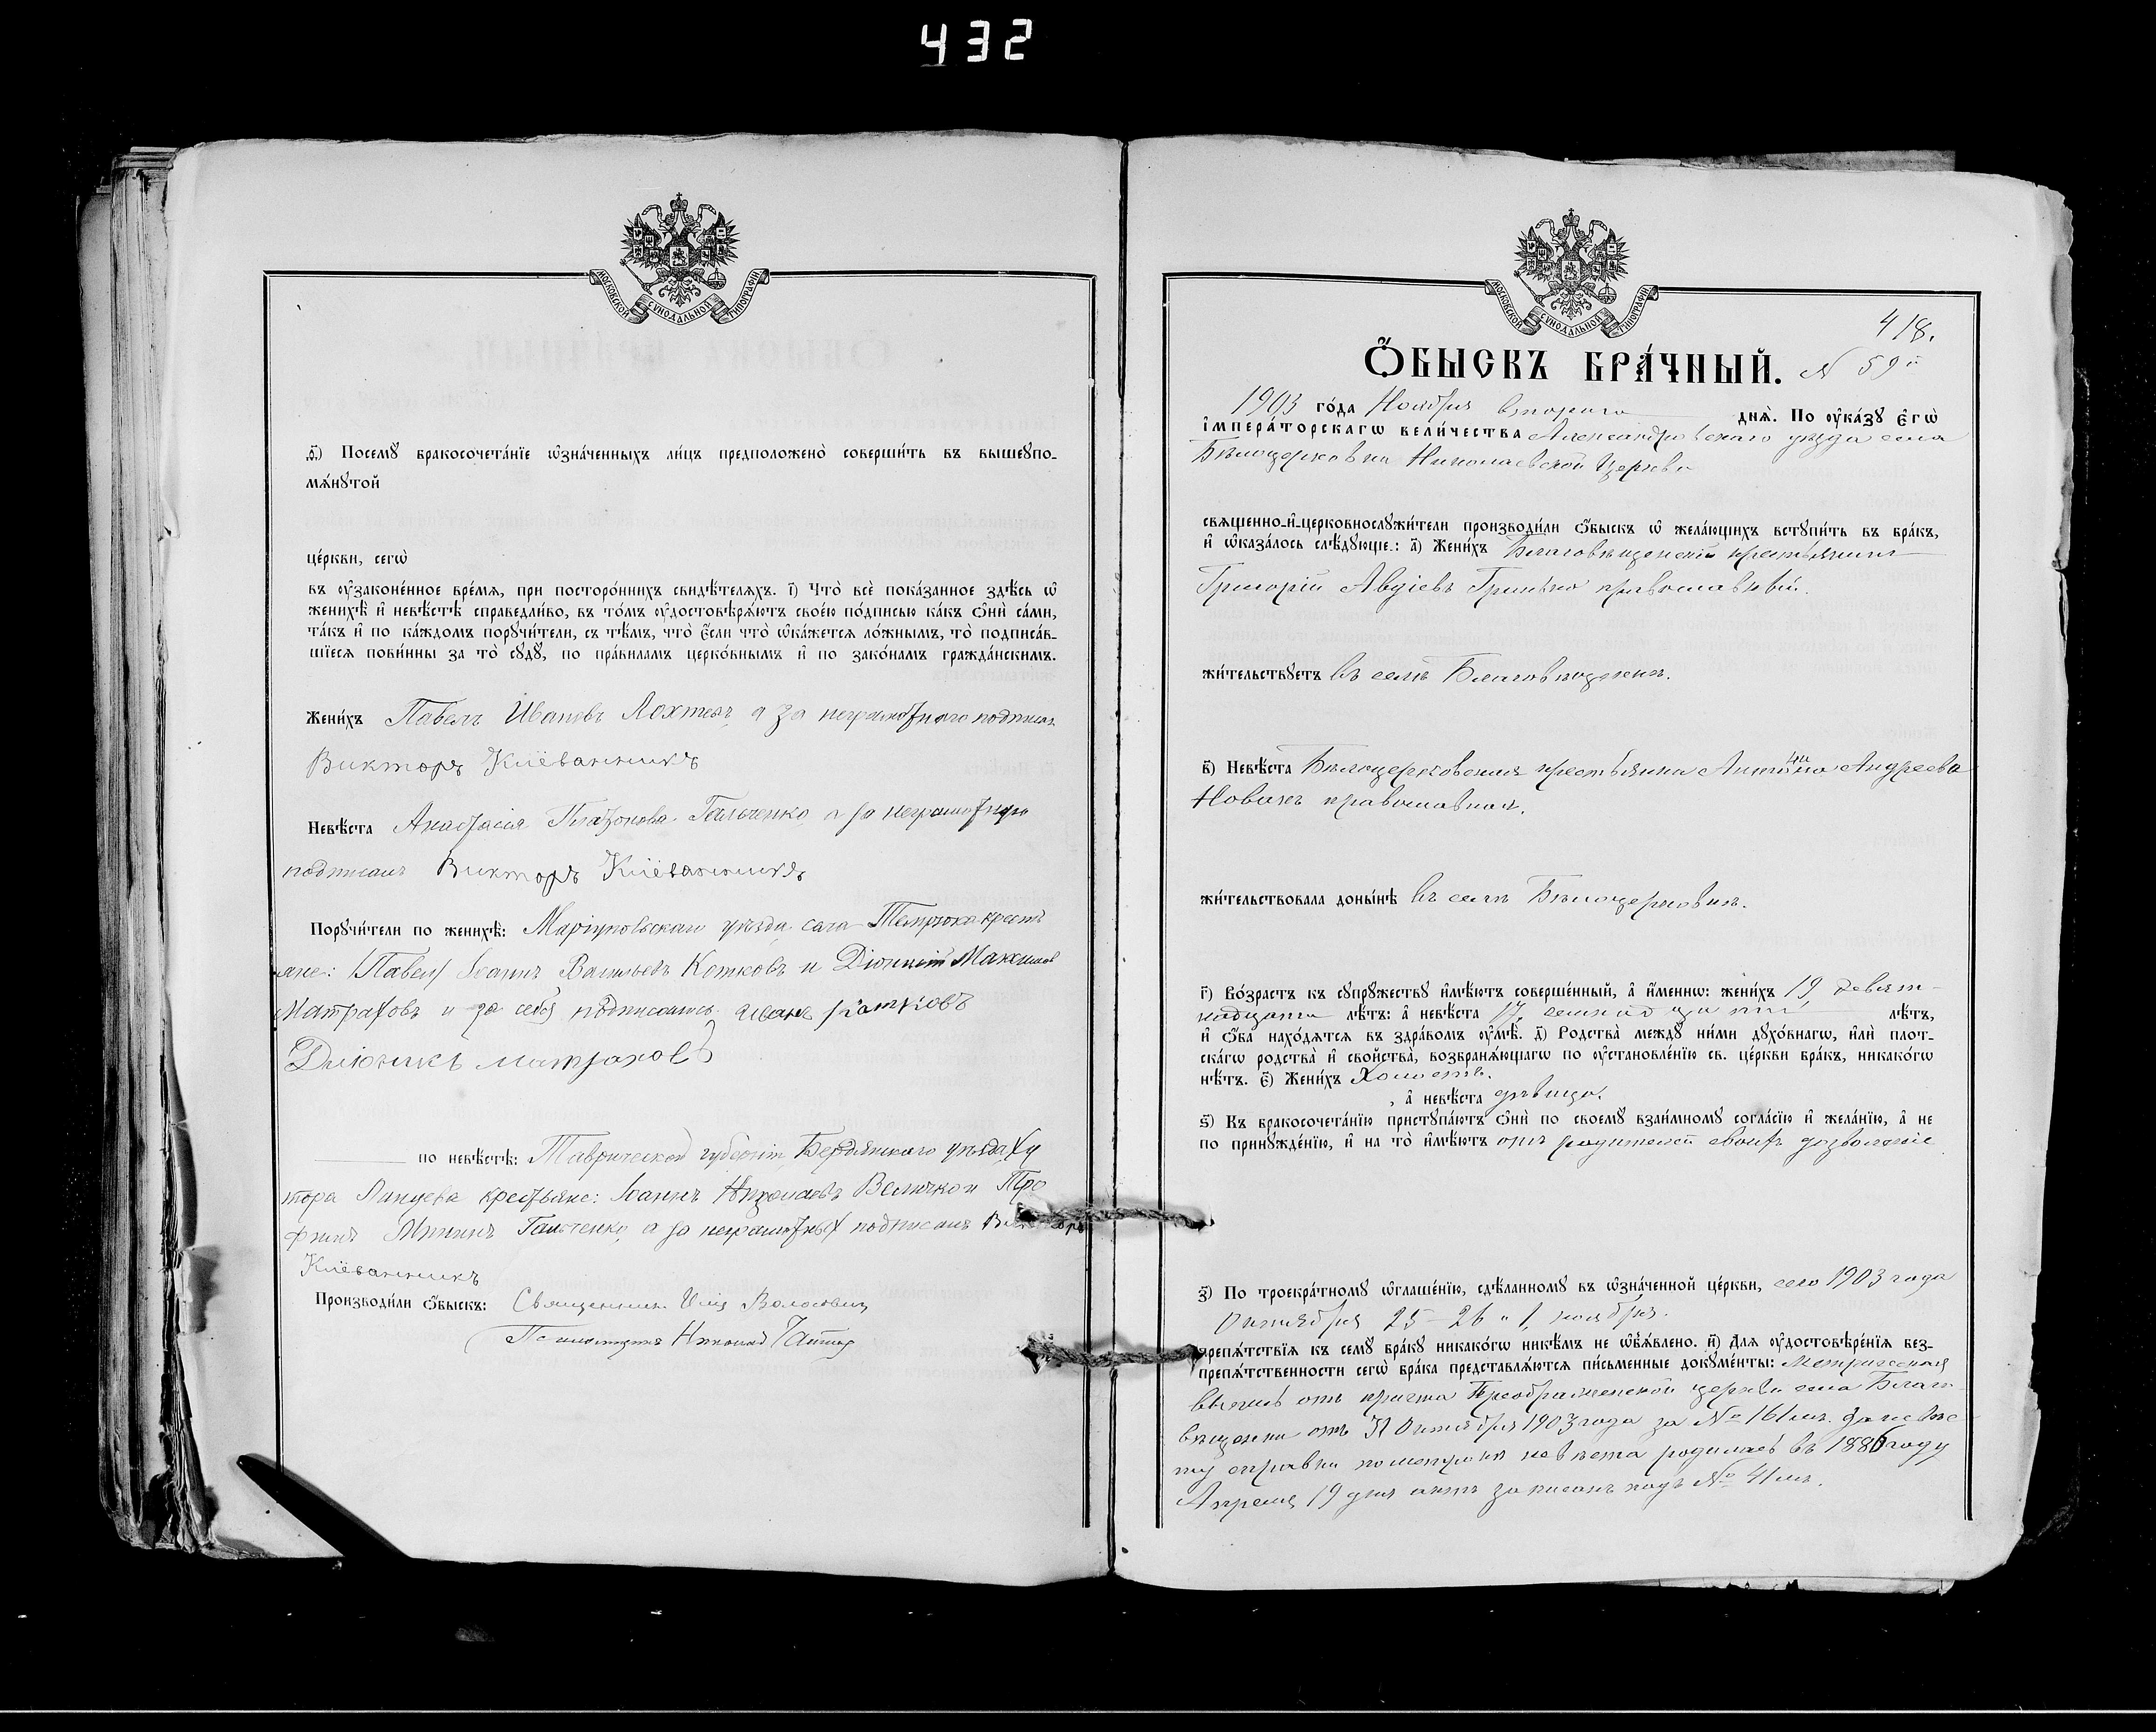 432
МОСКОВСКОЙ СѴНОДАЛЬНОЙ ТИПОГРАФІИ
Посемꙋ̀ бракосочета́нїе ѡ҆зна́ченныхъ ли́цъ предположено̀ соверши́ть въ вышеꙋпо-
мѧ́нꙋтой
це́ркви, сегѡ̀
въ ᲂу҆зако́ненное вре́мѧ, при посторо́ннихъ свидѣ́телѧхъ. і҃) Что̀ всѐ пока́занное здѣ́сь ѡ҆
женихѣ̀ и҆ невѣ́стѣ справедли́во, въ то́мъ ᲂу҆достовѣрѧ́ютъ свое́ю по́дписью ка́къ ѻ҆нѝ са́ми,
та́къ и҆ по ка́ждомъ порꙋчи́тели, съ тѣ́мъ, что̀ є҆́сли что̀ ѡ҆ка́жетсѧ ло́жнымъ, то̀ подписа́в-
шїесѧ пови́нны за то̀ сꙋдꙋ̀, по пра́виламъ церко́внымъ и҆ по зако́намъ гражда́нскимъ.
Жени́хъ Павелъ Ивановъ а за неграмотного подписал
Викторъ Кліёванникъ
Невѣ́ста Анастасія Платонова Гальченко а за неграмотную
подписалъ Викторъ Кліёванникъ
Порꙋчи́тели по женихѣ̀: Маріупольскаго уѣзда села Темрюка крестья
яне: (Павел) Іоаннъ Васильевъ Котковъ и Діонисій Максимов
Матраховъ и за себя подписались Иванъ Котковъ
матраховъ
по невѣ́стѣ: Таврической губерніи Бердянскаго уѣзда Ху
тора крестьяне: Іоаннъ Николаевъ Величко и Тро
фимъ Гальченко, а за неграмотныхъ подписалъ Викторъ
Кліёванникъ
Производи́ли ѻ҆́быскъ: Священникъ Илія Волосович
Псаломщикъ Николай
МОСКОВСКОЙ СѴНОДАЛЬНОЙ ТИПОГРАФІИ
418.
Ѻ҆́БЫСКЪ БРА́ЧНЫЙ. № 59й
1903 го́да Ноября второго днѧ̀. По ᲂу҆ка́зꙋ є҆гѡ̀
і҆мпера́торскагѡ вели́чества Александровскаго уѣзда села
Бѣлоцерковки Николаевской Церкви
свѧще́нно-и҆-церковнослꙋжи́тели производи́ли ѻ҆́быскъ ѡ҆ жела́ющихъ встꙋпи́ть въ бра́къ,
и҆ ѡ҆каза́лось слѣ́дꙋющее: а҃) Жени́хъ Благовѣщенскій крестьянинъ
Григорій Авдіевъ Гринько православный.
жи́тельствꙋетъ въ селѣ Благовѣщенкѣ.
в҃) Невѣ́ста Бѣлоцерковская крестьянка Антонина Андреева
Новакъ православная.
жи́тельствовала доны́нѣ въ селѣ Бѣлоцерковкѣ.
г҃) Во́зрастъ къ сꙋпрꙋ́жествꙋ и҆мѣ́ютъ соверше́нный, а҆ и҆́меннѡ: жени́хъ 19, девят-
надцати лѣ́тъ: а҆ невѣ́ста 17, семнадцати лѣ́тъ,
и҆ ѻ҆́ба нахо́дѧтсѧ въ здра́вомъ ᲂу҆мѣ̀. д҃) Родства̀ междꙋ̀ ни́ми дꙋхо́внагѡ, и҆лѝ пло́т-
скагѡ родства̀ и҆ сво́йства, возбранѧ́ющагѡ по ᲂу҆становле́нїю св. це́ркви бра́къ, никако́гѡ
нѣ́тъ. є҃) Жени́хъ Холостъ.
, а҆ невѣ́ста дѣвица.
ѕ҃) Къ бракосочета́нїю пристꙋпа́ютъ ѻ҆нѝ по своемꙋ̀ взаи́мномꙋ согла́сїю и҆ жела́нїю, а҆ не
по принꙋжде́нїю, и҆ на то̀ и҆мѣ́ютъ отъ родителей своихъ дозволеніе
з҃) По троекра́тномꙋ ѡ҆глаше́нїю, сдѣ́ланномꙋ въ ѡ҆зна́ченной це́ркви, сего 1903 года
Октября 25 - 26 и 1, ноября.
препѧ́тствїѧ къ семꙋ̀ бра́кꙋ никако́гѡ никѣ́мъ не ѡ҆б̾ѧ́влено. и҃) Длѧ ᲂу҆достовѣре́нїѧ без-
препѧ́тственности сегѡ̀ бра́ка представлѧ́ютсѧ пи́сьменные докꙋме́нты: Метрическая
выпись отъ причта Преображенской церкви села Благо-
вѣщенки отъ 31 Октября 1903 года за № 161мъ. Для невѣс-
ту справки по метрикѣ невѣста родилась въ 1886 году
Апрѣля 19 дня актъ записанъ подъ № 41мъ.